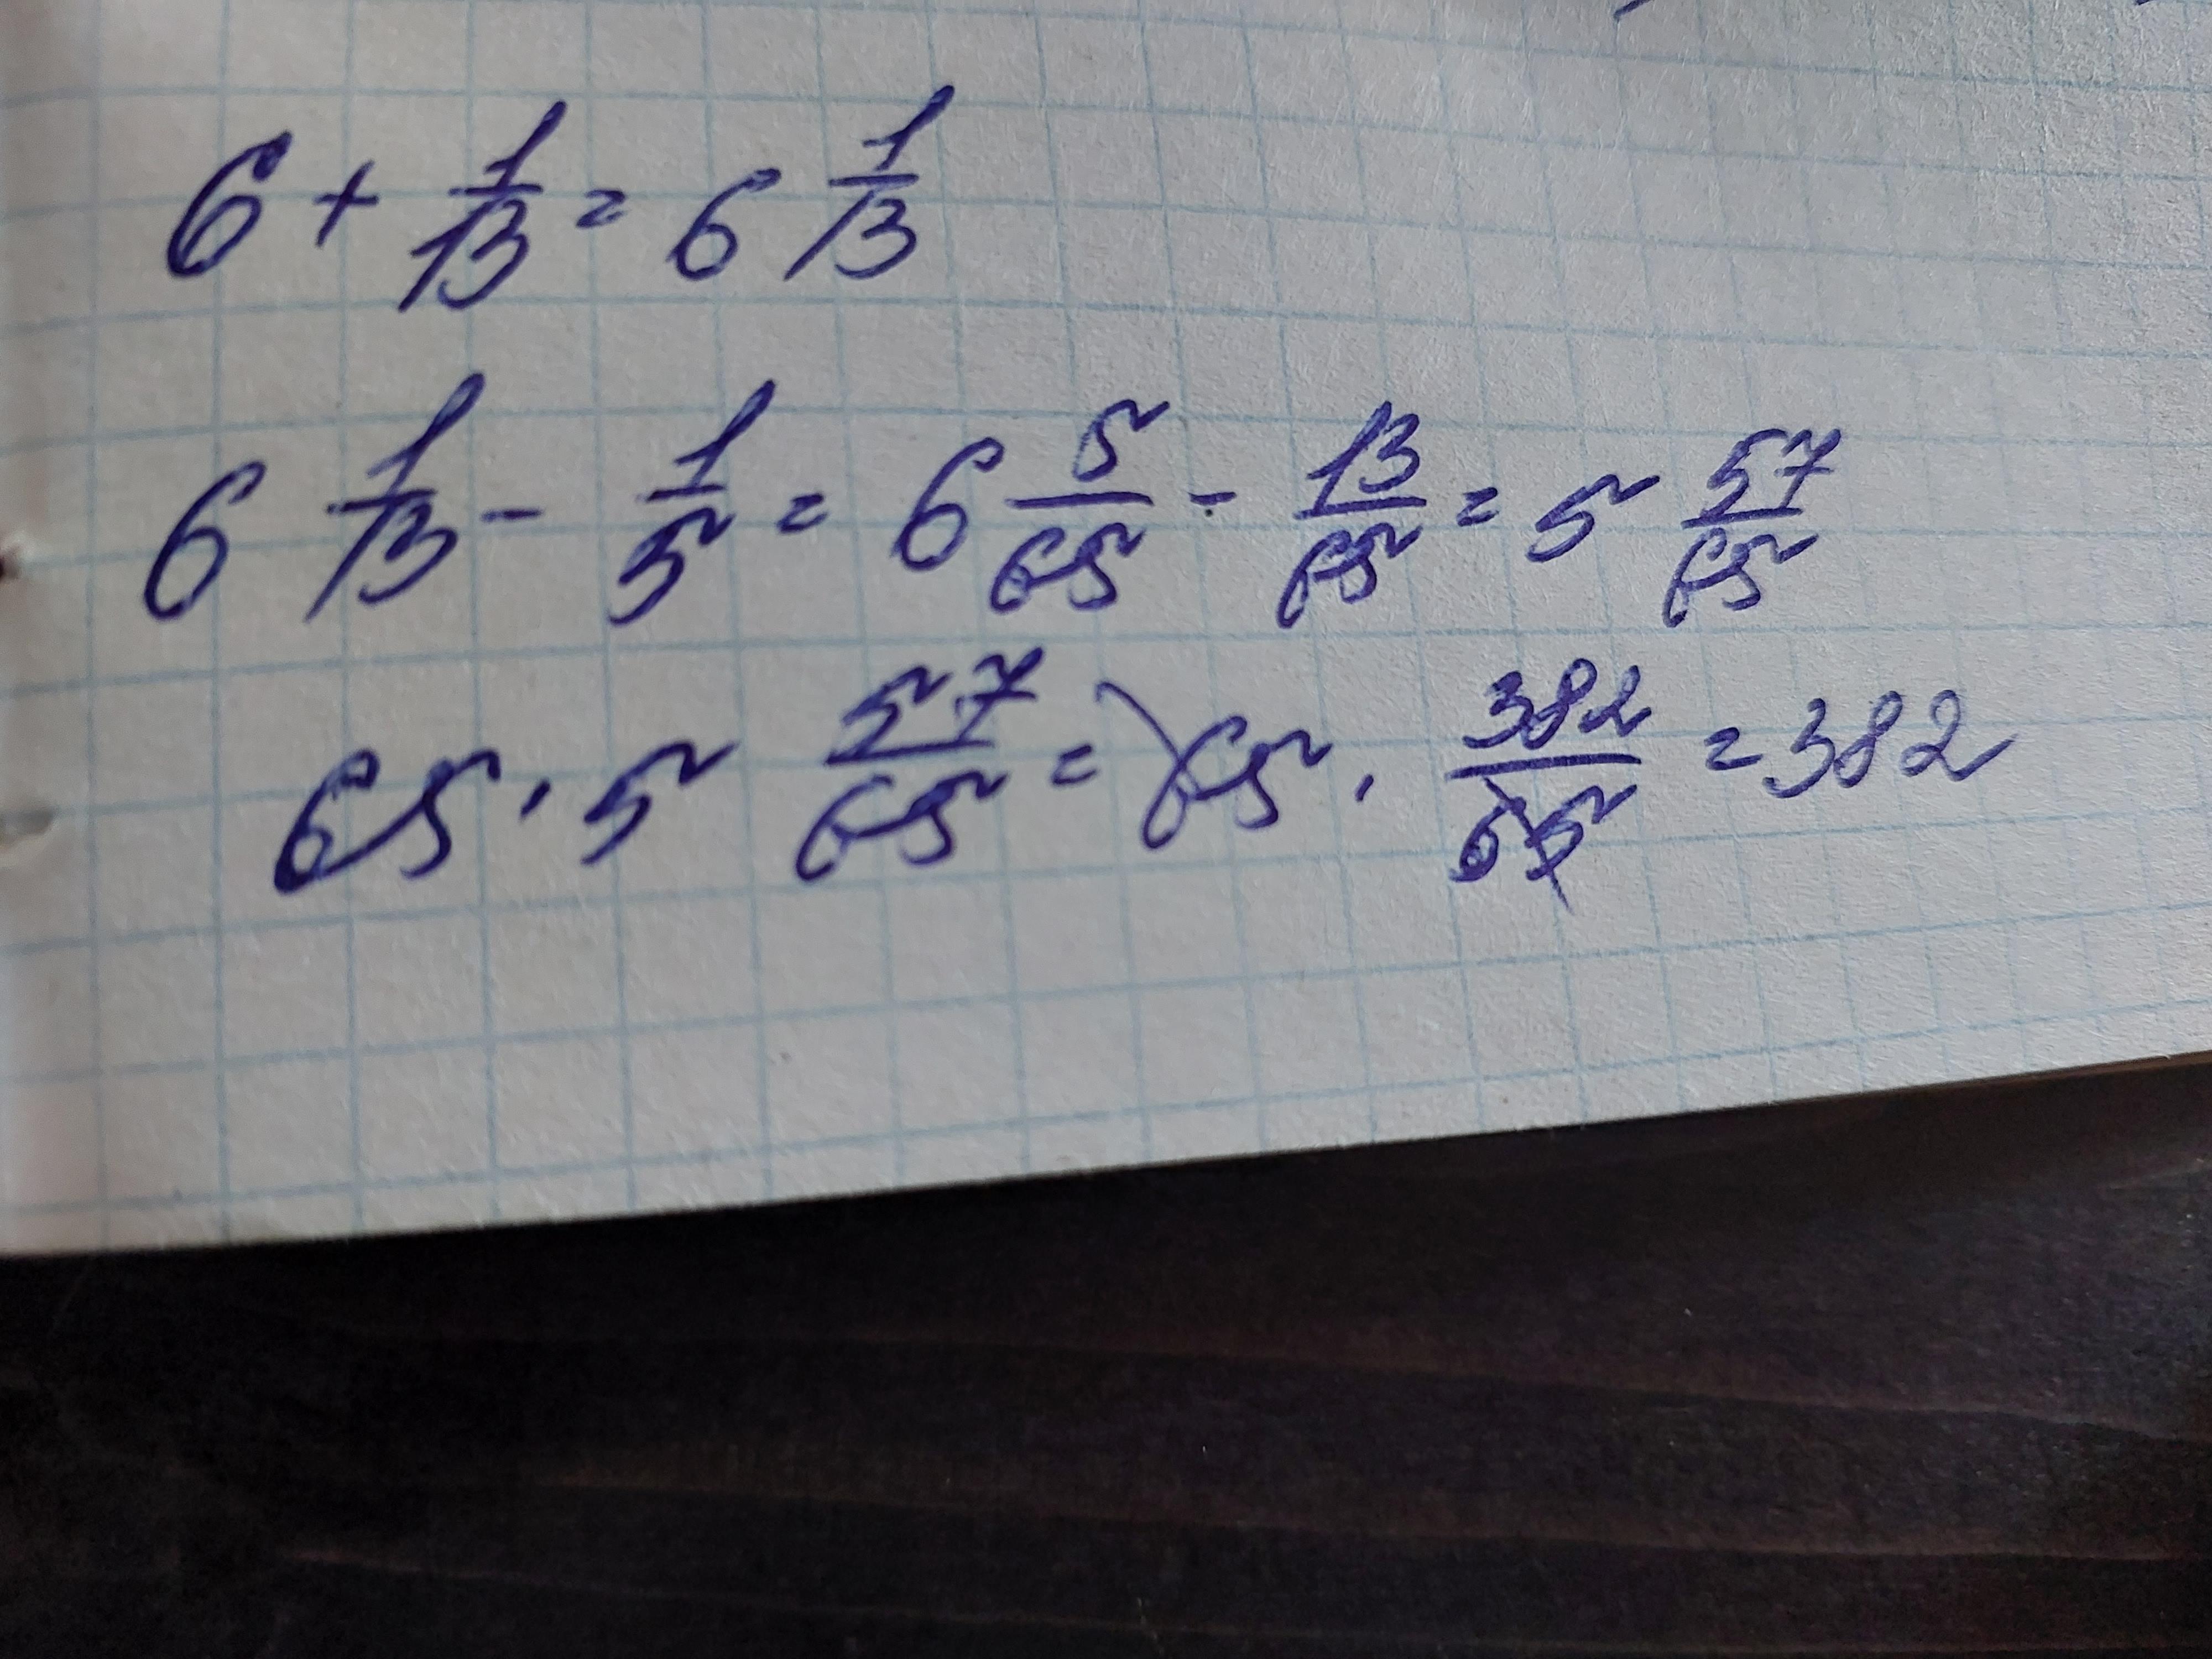 6 + 1/13 = 6 1/13
6 1/13 - 1/5 = 6 5/65 - 13/65 = 5 57/65
65 · 5 57/65 = 65 · 382/65 = 382